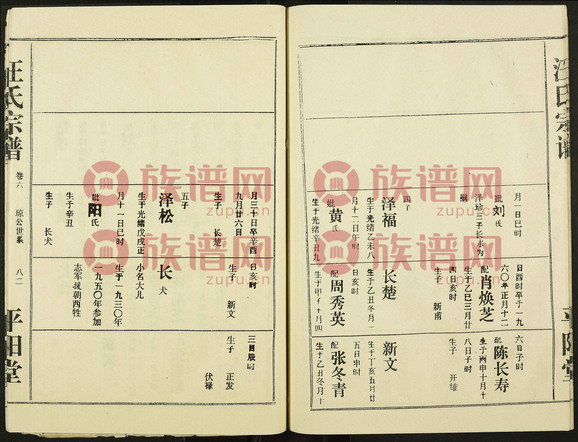 汪氏宗谱
月一日已时
妣刘氏
泽珍三子长水为
嗣
四子
泽福
生于光绪乙未八
月十二日午时
妣黄氏
生于光绪辛丑九
日酉时卒于一九
六〇年正月十二
配肖焕芝
生于乙巳三月廿
四日亥时
生子 新甫
长楚
生于乙丑冬月一
日亥时
配周秀英
生于甲子十月四
六日子时
配陈长寿
生于丙申十月十
八日子时
生子 开雄
新文
生于丁亥五月廿
五日申时
配张冬青
生于乙丑冬月十
平阳堂
月三十日卒辛酉
九月廿六日
生子 长楚
五子
泽松
生于光绪戊戌正
月十一日已时
妣阳氏
生于辛丑
生子 长犬
日亥时
生子 新文
长犬
小名大儿
生于一九三〇年
一九五〇年参加
志军援朝西牲
三日辰时
生子 正发
伏禄
汪氏宗谱
卷六
琼公世系
八二
平阳堂
族谱网
zupu.cn
族谱网
zupu.cn